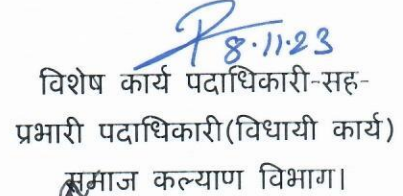 8.11.23
विशेष कार्य पदाधिकारी-सह-
प्रभारी पदाधिकारी(विधायी कार्य)
समाज कल्याण विभाग।